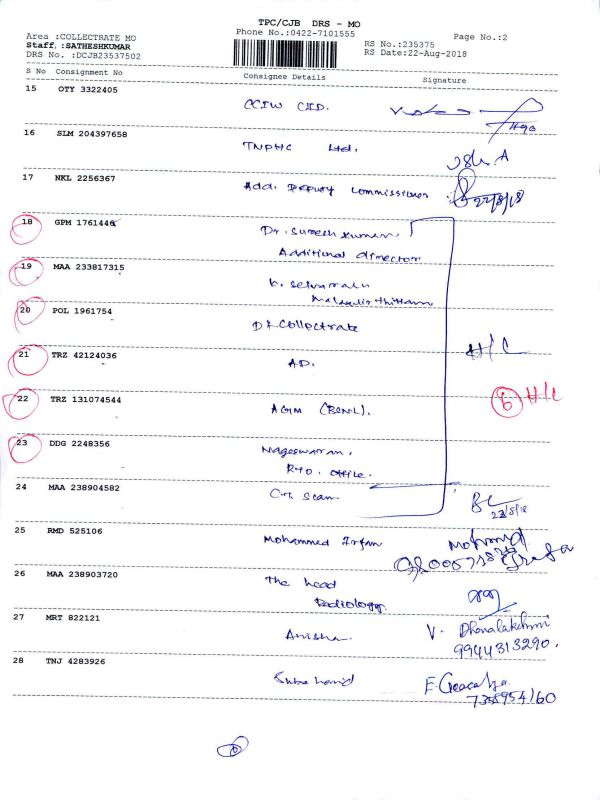 TPC/CJB DRS - MO
Area :COLLECTRATE MO
Phone No.:0422-7101555
Page No.:2
Staff :SATHESHKUMAR
RS No.:235375
DRS No. :DCJB23537502
RS Date:22-Aug-2018
S No Consignment No Consignee Details Signature
15 OTY 3322405
CCIW CID.
16 SLM 204397658
TNPHC Ltd.
17 NKL 2256367
Add. Deputy Commissioner
22/8/18
18 GPM 1761446
Dr. Suresh Kumar,
Additional director
19 MAA 233817315
K. Selvaraju
20 POL 1961754
Collectrate
H/C
21 TRZ 42124036
AD.
22 TRZ 131074544
AGM (BSNL).
6 H/C
23 DDG 2248356
Nageswaran,
RTO. office.
24 MAA 238904582
C.T. Scan
25 RMD 525106
Mohammed Irfan
26 MAA 238903720
The head
Radiology
27 MRT 822121
Anisha
V. Dhanalakshmi
9944313290.
28 TNJ 4283926